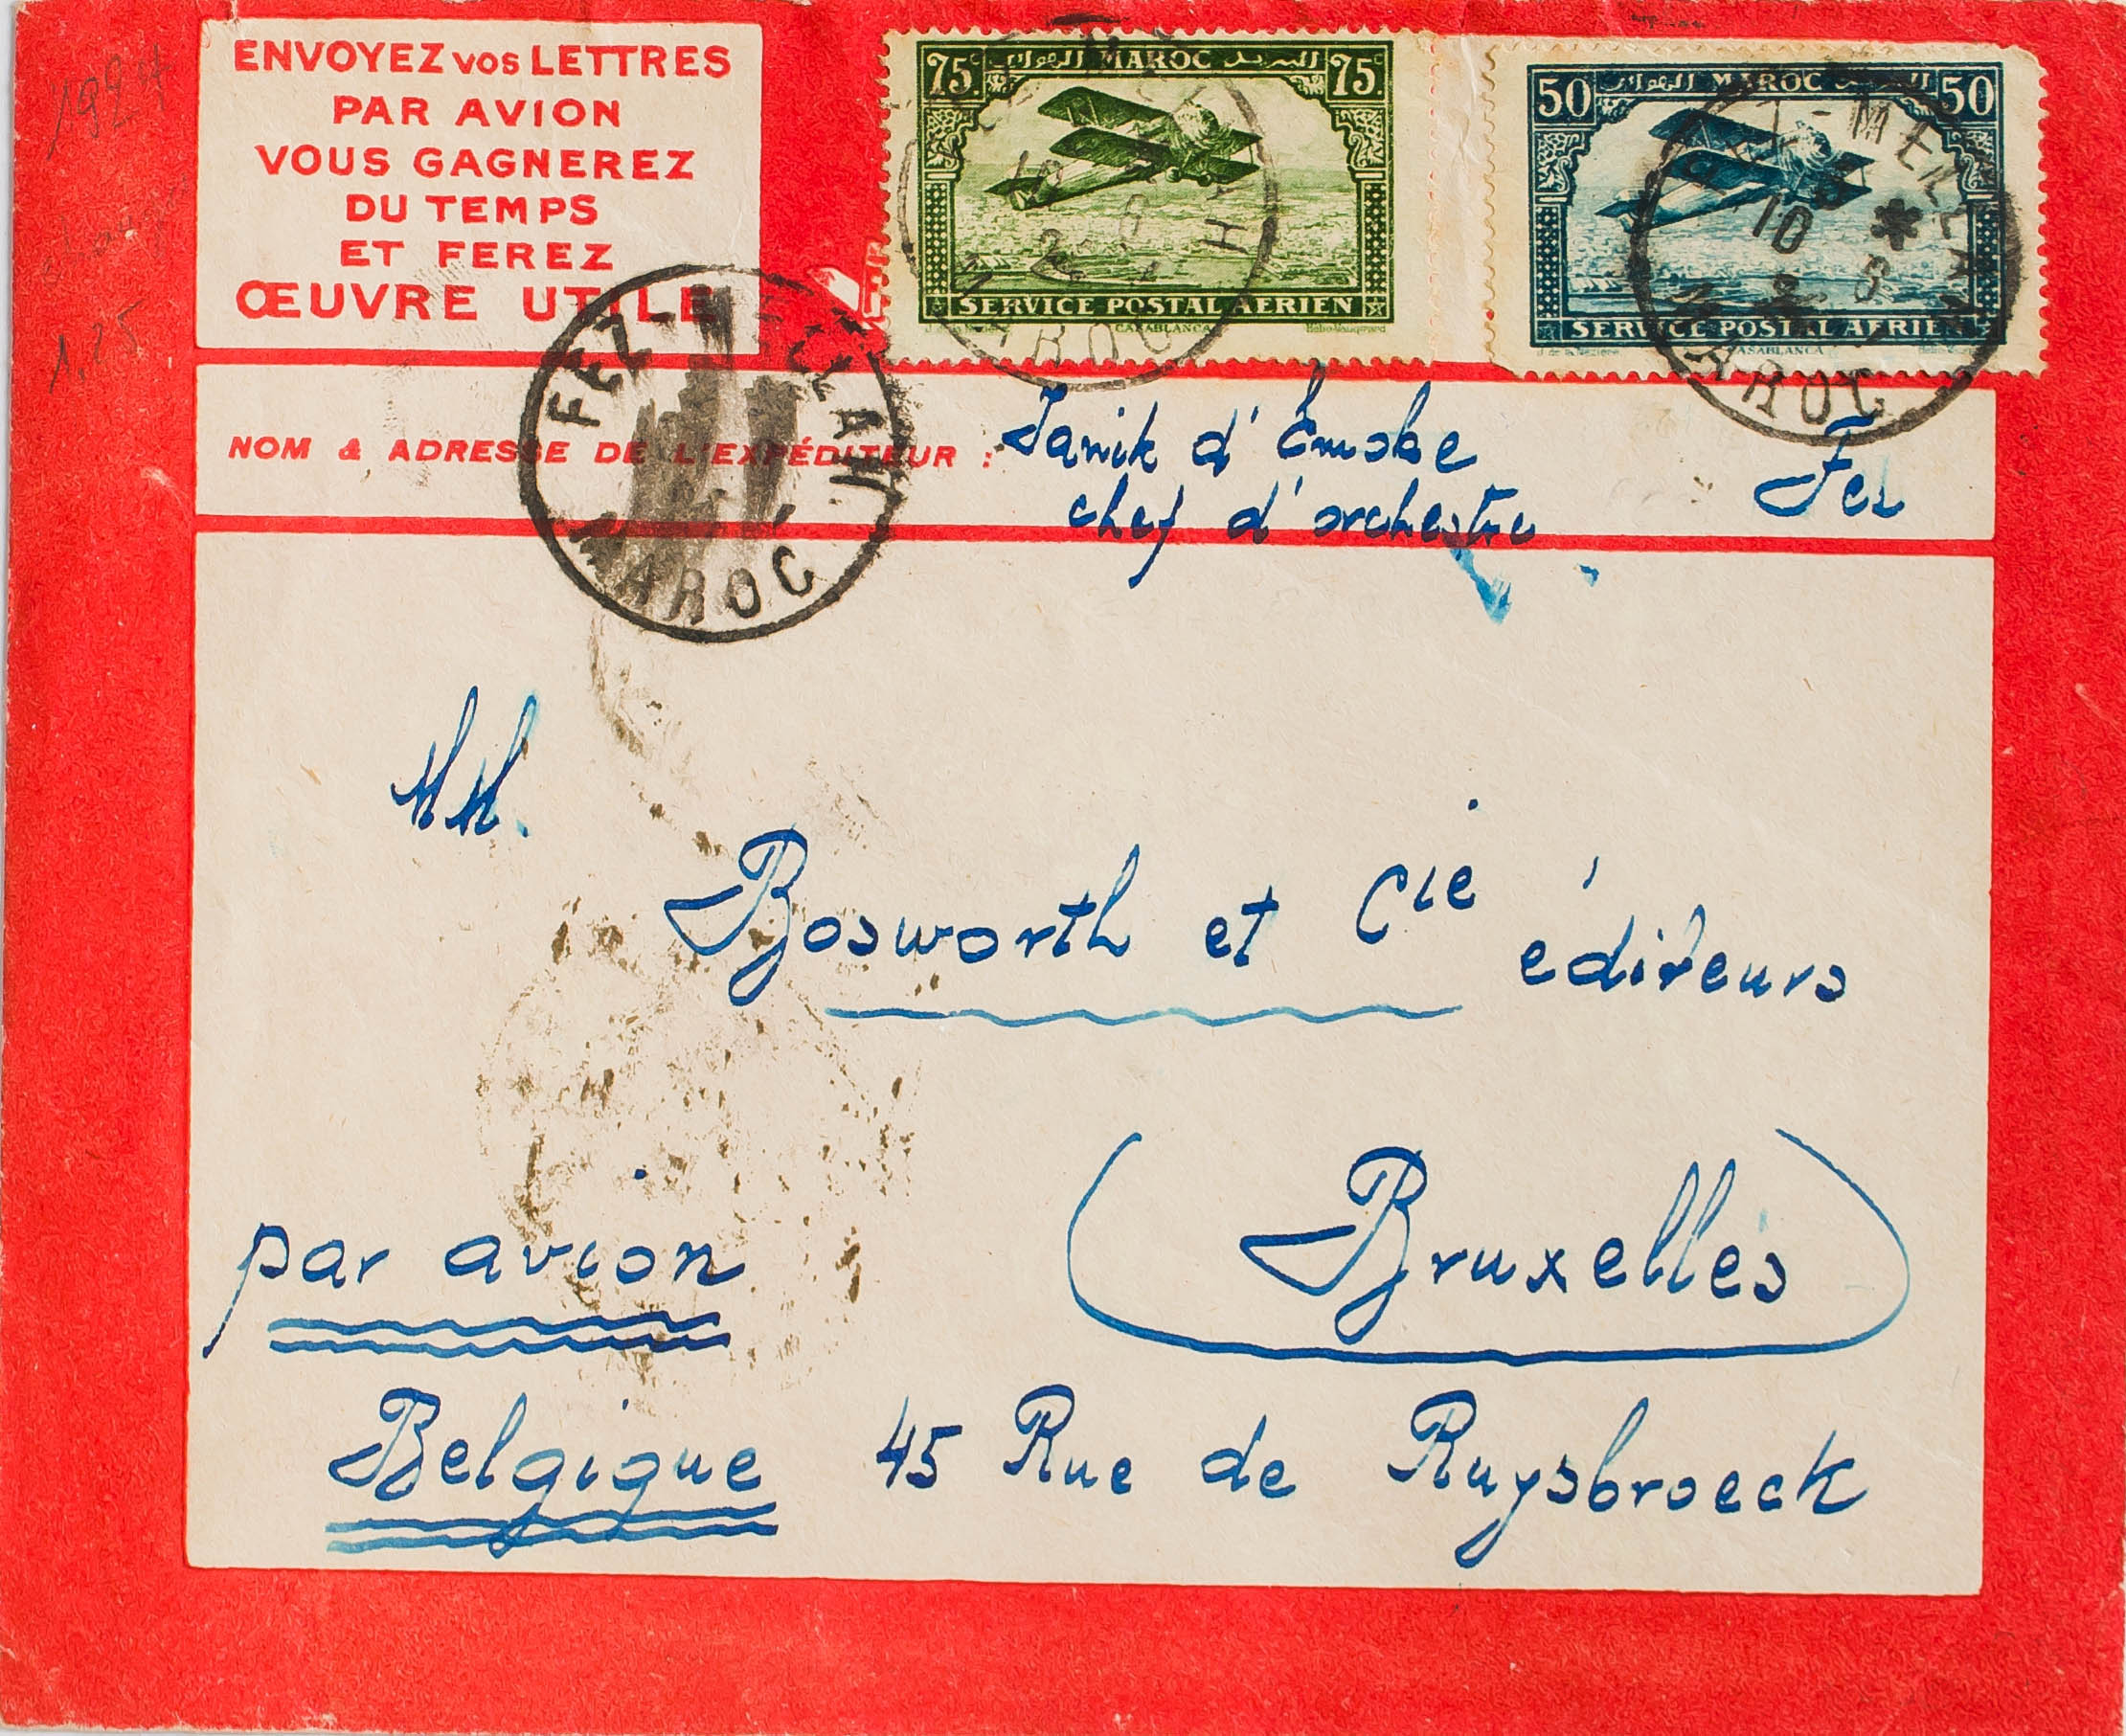 1924
1,25
ENVOYEZ VOS LETTRES
PAR AVION
VOUS GAGNEREZ
DU TEMPS
ET FEREZ
ŒUVRE UTILE
75c MAROC 75c
SERVICE POSTAL AERIEN
CASABLANCA
50 MAROC 50
SERVICE POSTAL AERIEN
J. de la Nézière CASABLANCA
FEZ-MELLAH
10 * 8
MAROC
FEZ-MELLAH
MAROC
NOM & ADRESSE DE L'EXPÉDITEUR :
d'
Fez
chef d'orchestre
MM.
Bosworth et Cie éditeurs
par avion
(Bruxelles)
Belgique 45 Rue de Ruysbroeck